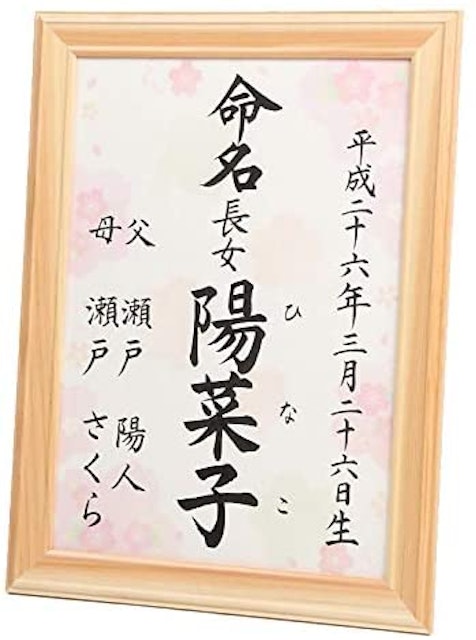 平成二十六年三月二十六日生
命名 長女 陽菜子
ひなこ
父 瀬戸 陽人
母 瀬戸 さくら